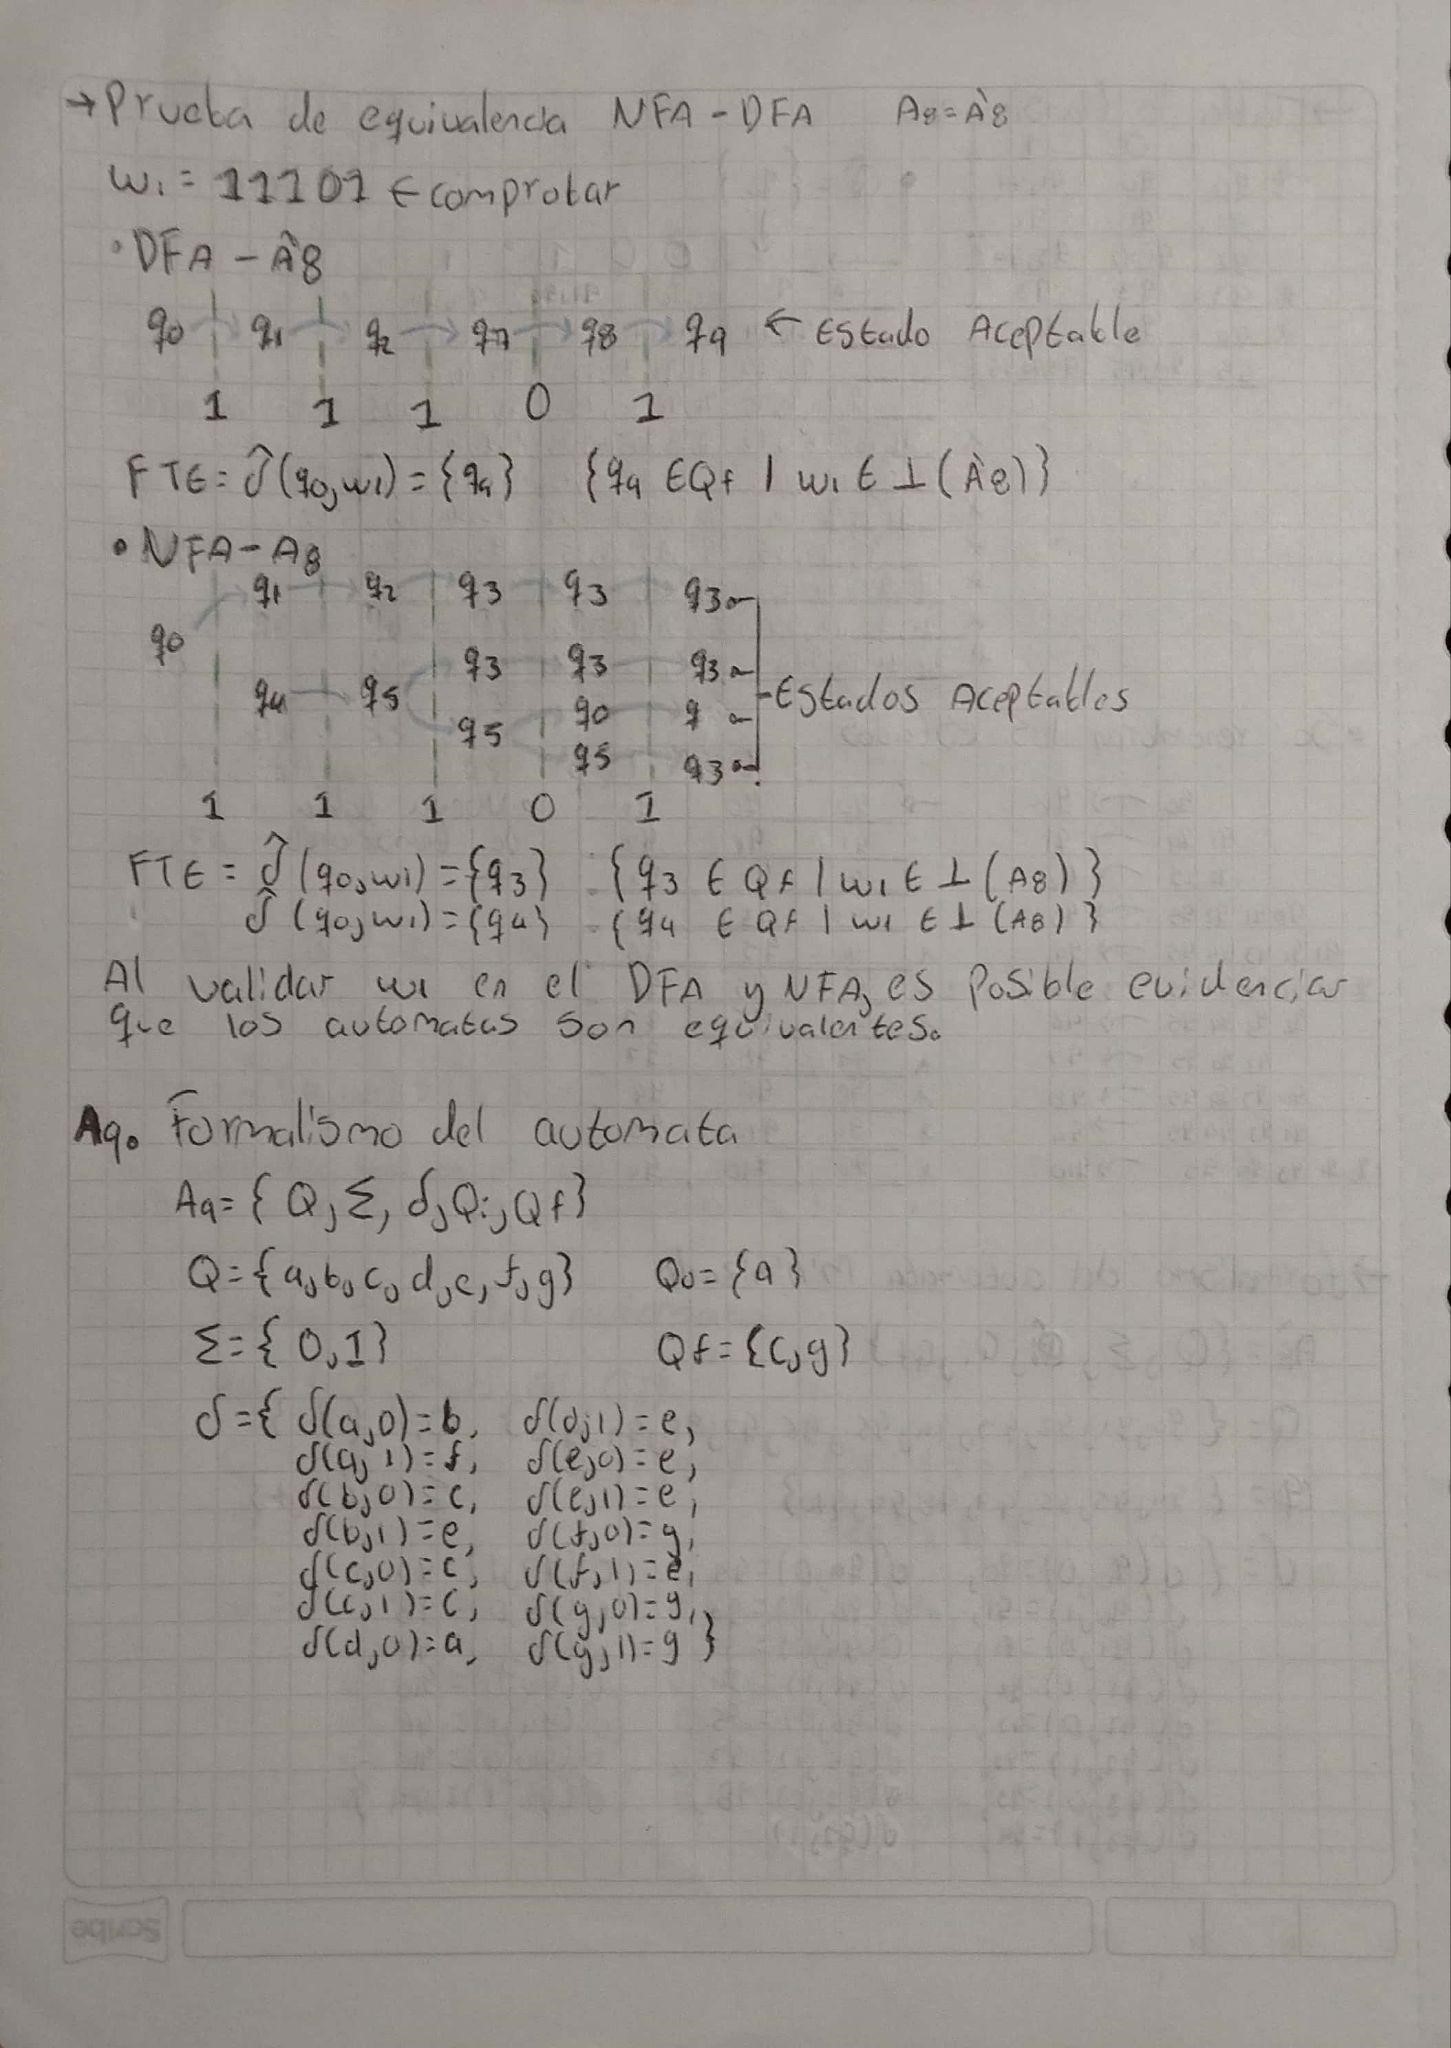 → Prueba de equivalencia NFA - DFA A8 = À8
W1 = 11101 ← comprobar
• DFA - Â8
q0 q1 q2 q7 q8 q9 ← Estado Aceptable
1 1 1 0 1
FTE = δ̂(q0,w1) = {q9} {q9 ∈ Qf | w1 ∈ ⊥(À8)}
• NFA - A8
q1 q2 q3 q3 q3
q0
q3 q3 q3
q4 q5 Estados Aceptables
q0 q
q5
q5 q3
1 1 1 0 1
FTE = δ̂(q0,w1) = {q3} {q3 ∈ Qf | w1 ∈ ⊥(A8)}
δ̂(q0,w1) = {q4} {q4 ∈ Qf | w1 ∈ ⊥(A8)}
Al validar w1 en el DFA y NFA, es posible evidenciar
que los automatas son equivalentes.
A9. Formalismo del automata
A9 = {Q, Σ, δ, Qi, Qf}
Q = {a,b,c,d,e,f,g} Q0 = {a}
Σ = {0,1} Qf = {c,g}
δ = { δ(a,0)=b, δ(d,1)=e,
δ(a,1)=f, δ(e,0)=e,
δ(b,0)=c, δ(e,1)=e,
δ(b,1)=e, δ(f,0)=g,
δ(c,0)=c, δ(f,1)=e,
δ(c,1)=c, δ(g,0)=g,
δ(d,0)=a, δ(g,1)=g }
Scribe